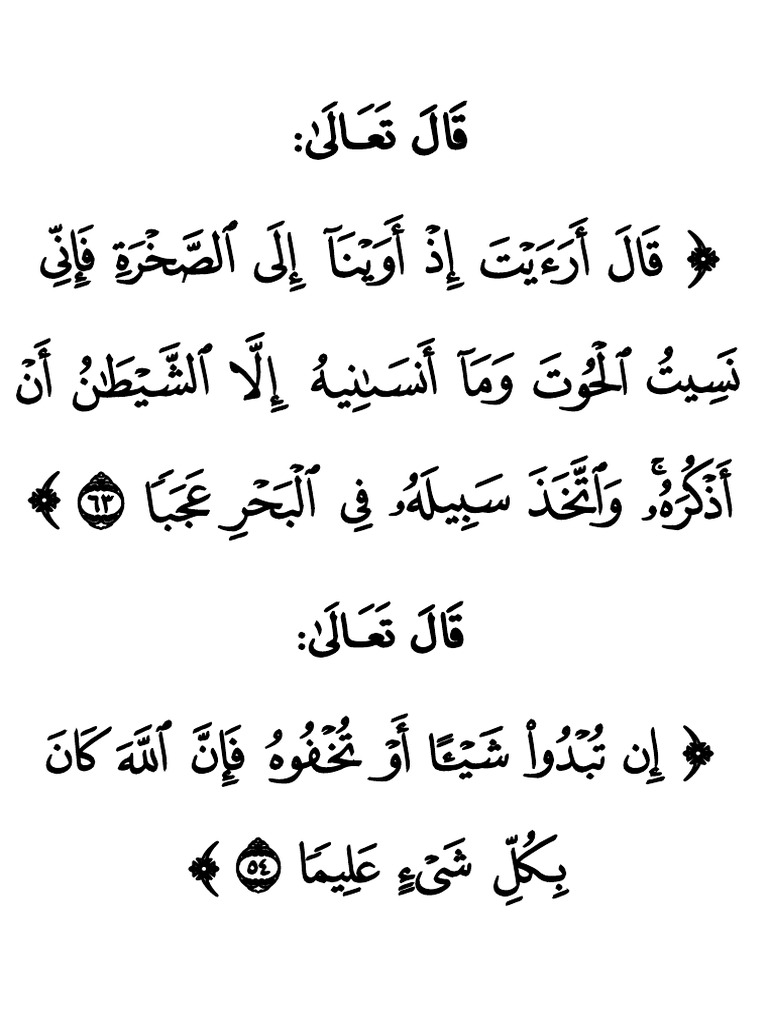 قَالَ تَعَالَىٰ:
﴿ قَالَ أَرَءَيۡتَ إِذۡ أَوَيۡنَآ إِلَى ٱلصَّخۡرَةِ فَإِنِّي
نَسِيتُ ٱلۡحُوتَ وَمَآ أَنسَىٰنِيهُ إِلَّا ٱلشَّيۡطَٰنُ أَنۡ
أَذۡكُرَهُۥۚ وَٱتَّخَذَ سَبِيلَهُۥ فِي ٱلۡبَحۡرِ عَجَبٗا ٦٣ ﴾
قَالَ تَعَالَىٰ:
﴿ إِن تُبۡدُواْ شَيۡـًٔا أَوۡ تُخۡفُوهُ فَإِنَّ ٱللَّهَ كَانَ
بِكُلِّ شَيۡءٍ عَلِيمٗا ٥٤ ﴾